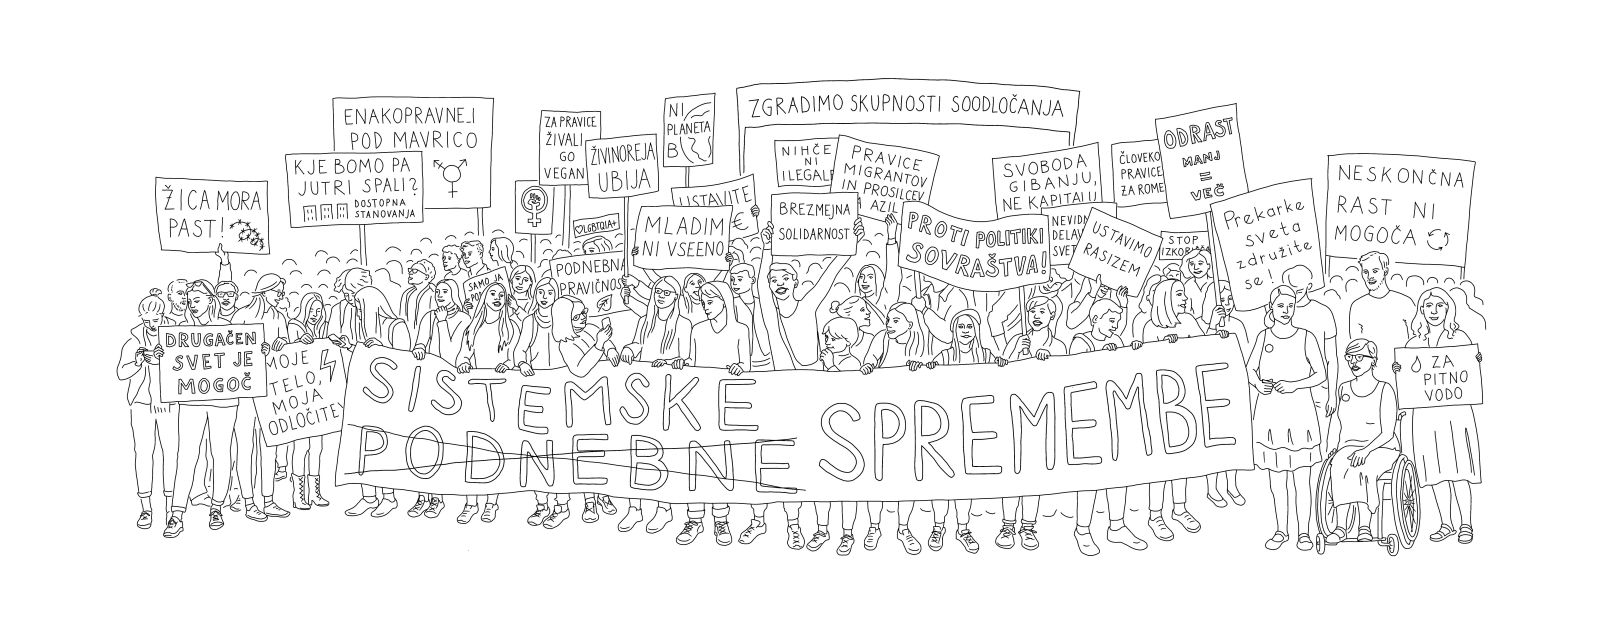 ENAKOPRAVNEJ
POD MAVRICO
KJE BOMO PA
JUTRI SPALI?
DOSTOPNA
STANOVANJA
ŽICA MORA
PAST!
ZA PRAVICE
ŽIVALI
GO
VEGAN
ŽIVINOREJA
UBIJA
NI
PLANETA
B
LGBTQIA+
USTAVITE
€
MLADIM
NI VSEENO
PODNEBNA
PRAVIČNOS
SAMO JA
ZGRADIMO SKUPNOSTI SOODLOČANJA
NIHČE
NI
ILEGAL
PRAVICE
MIGRANTOV
IN PROSILCEV
AZIL
BREZMEJNA
SOLIDARNOST
PROTI POLITIKI
SOVRAŠTVA!
SVOBODA
GIBANJU,
NE KAPITALU
NEVIDN
DELAV
SVET
USTAVIMO
RASIZEM
ČLOVEKO
PRAVICE
ZA ROME
STOP
IZKORI
ODRAST
MANJ
=
VEČ
Prekarke
sveta
združite
se!
NESKONČNA
RAST NI
MOGOČA
ZA
PITNO
VODO
DRUGAČEN
SVET JE
MOGOČ
MOJE
TELO,
MOJA
ODLOČITEV
SISTEMSKE
PODNEBNE
SPREMEMBE